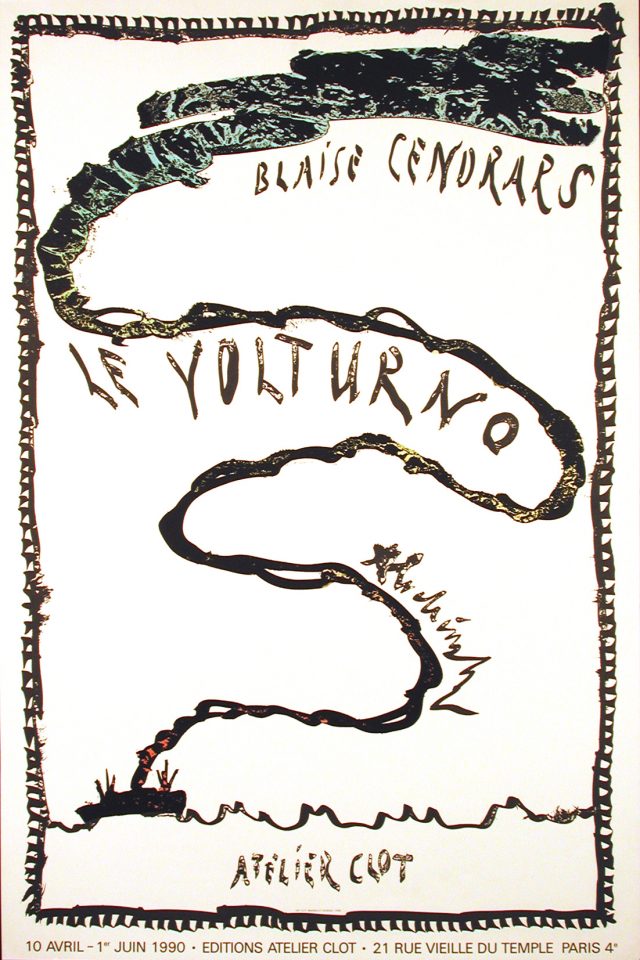 BLAISE CENDRARS
LE VOLTURNO
Alechinsky
ATELIER CLOT
10 AVRIL – 1er JUIN 1990 · EDITIONS ATELIER CLOT · 21 RUE VIEILLE DU TEMPLE PARIS 4e